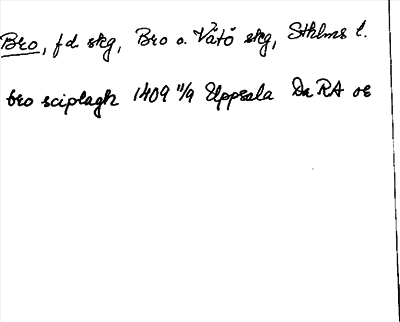 Bro, f.d. skg, Bro o. Vätö skg, Sthlms l.
bro sciplagh 1409 11/9 Uppsala Da RA or